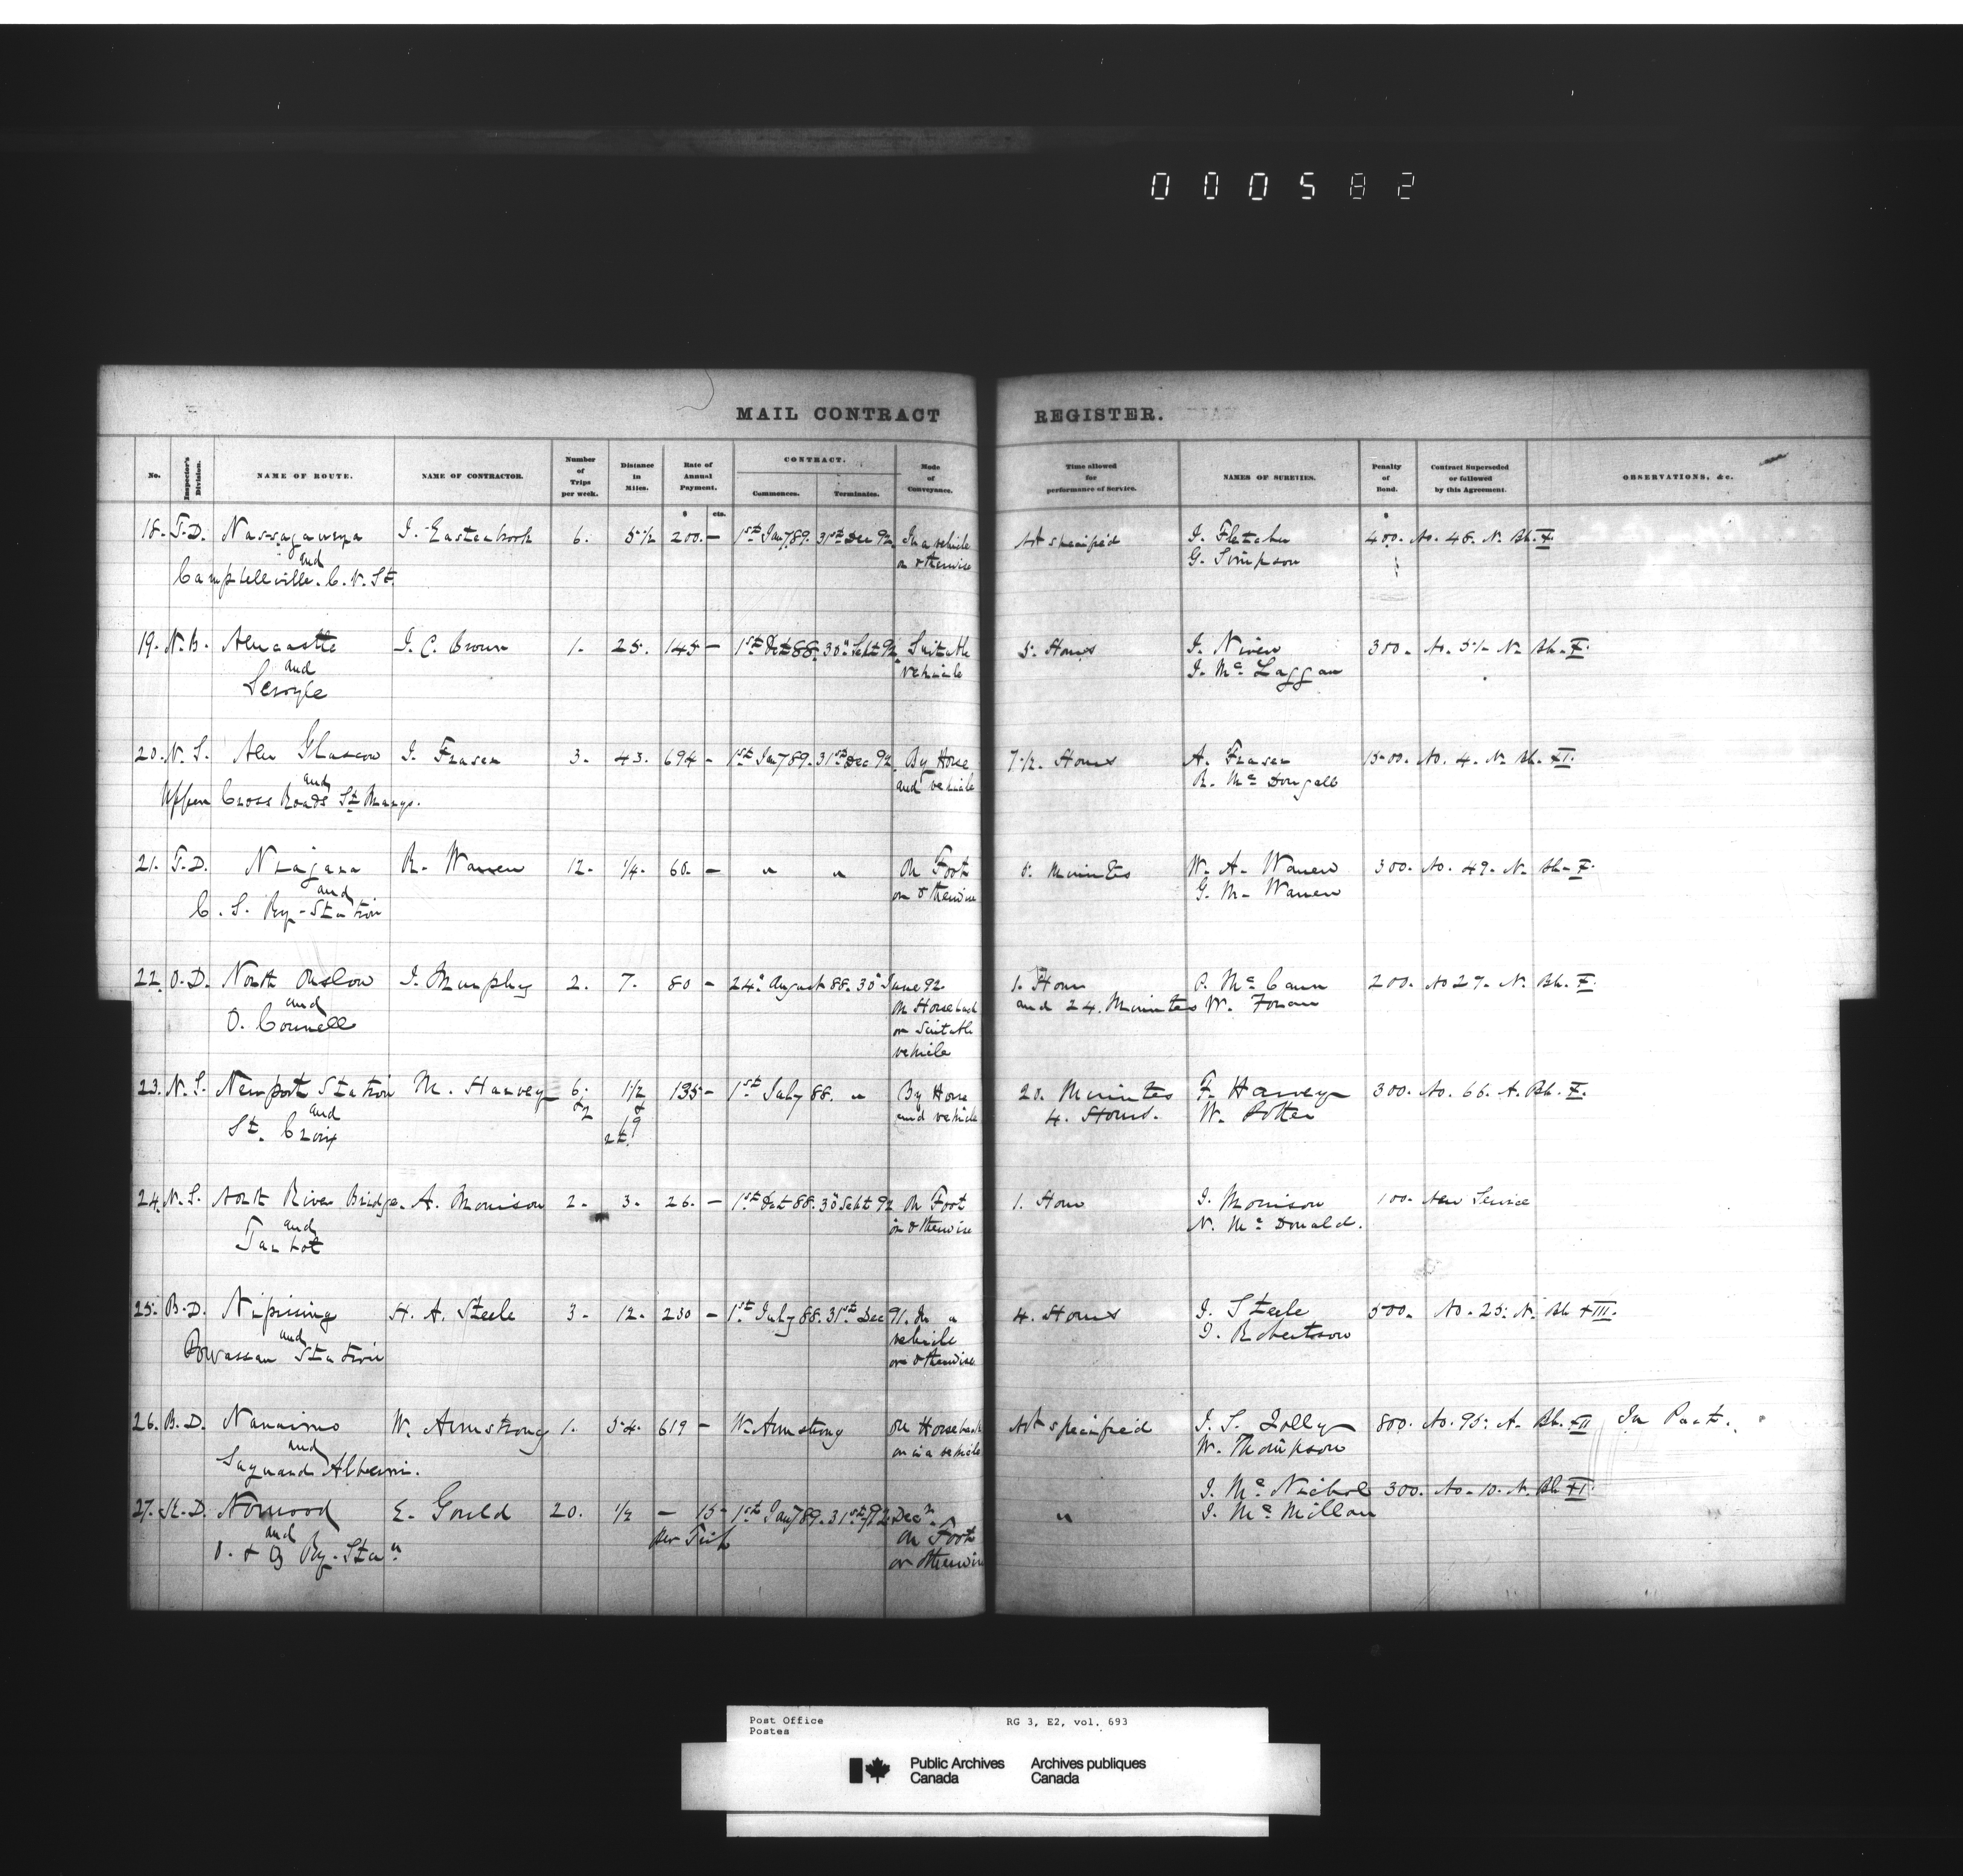 000582
MAIL CONTRACT REGISTER.
No. Inspector's Division. NAME OF ROUTE. NAME OF CONTRACTOR. Number of Trips per week. Distance in Miles. Rate of Annual Payment. CONTRACT. Commences. Terminates. Mode of Conveyance. Time allowed for performance of Service. NAMES OF SURETIES. Penalty of Bond. Contract Superseded or followed by this Agreement. OBSERVATIONS, &c.
$ cts. $
18. T.D. Nassagaweya J. Eastabrook 6. 5 1/2 200. — 1st Jany 89. 31st Dec 92 In a vehicle Not specified J. Fletcher 400. No. 48. N. Bk. X.
and or otherwise G. Simpson
Campbellville. C.V. St.
19. N.B. Newcastle J. C. Brown 1. 25. 145 — 1st Oct 88. 30" Sept 92 Suitable 5. Hours J. Niven 300. No. 51. N. Bk. X.
and vehicle J. Mc Laggan
Semple
20. N.S. New Glascow J. Fraser 3. 43. 694 — 1st Jany 89. 31st Dec 92. By Horse 7 1/2. Hours A. Fraser 1500. No. 4. N. Bk. XI.
and and vehicle R. Mc Dougall
Upper Cross Roads St Marys.
21. T.D. Niagara R. Warren 12. 1/4. 60. — " " On Foot 5. Minutes W. A. Warren 300. No. 49. N. Bk. X.
and or otherwise G. M. Warren
C. S. Ry. Station
22. O.D. North Onslow J. Murphy 2. 7. 80 — 24" August 88. 30" June 92. 1. Hour P. Mc Cann 200. No 27. N. Bk. X.
and On Horseback and 24. Minutes W. Foran
O. Connell or Suitable
vehicle
23. N.S. Newport Station M. Harvey 6. 1 1/2 195 — 1st July 88. " By Horse 20. Minutes F. Harvey 300. No. 66. N. Bk. X.
and & 2 & 19 and vehicle 4. Hours. W. Potter
St. Croix 2t.
24. N.S. North River Bridge. A. Morrison 2. 3. 26. — 1st Oct 88. 30" Sept 92 On Foot 1. Hour J. Morrison 100. New Service
and or otherwise N. Mc Donald.
Tarbot
25. B.D. Nipissing H. A. Steele 3. 12. 230 — 1st July 88. 31st Dec 91. In a 4. Hours J. Steele 500. No. 25. N. Bk XIII.
and vehicle D. Robertson
Powassan Station or otherwise
26. B.D. Nanaimo W. Armstrong 1. 54. 619 — W. Armstrong On Horseback Not specified J. S. Jolly 800. No. 95. N. Bk. XII In Part.
and or in a vehicle W. Thompson
Alberni.
J. Mc Nichol 300. No. 10. N. Bk XI.
27. St. D. Norwood E. Gould 20. 1/2 — 15 1st Jany 89. 31st Dec 92 " J. Mc Millan
and per Trip On Foot
O. & Q Ry. Stan or otherwise
Post Office RG 3, E2, vol. 693
Postes
Public Archives Archives publiques
Canada Canada